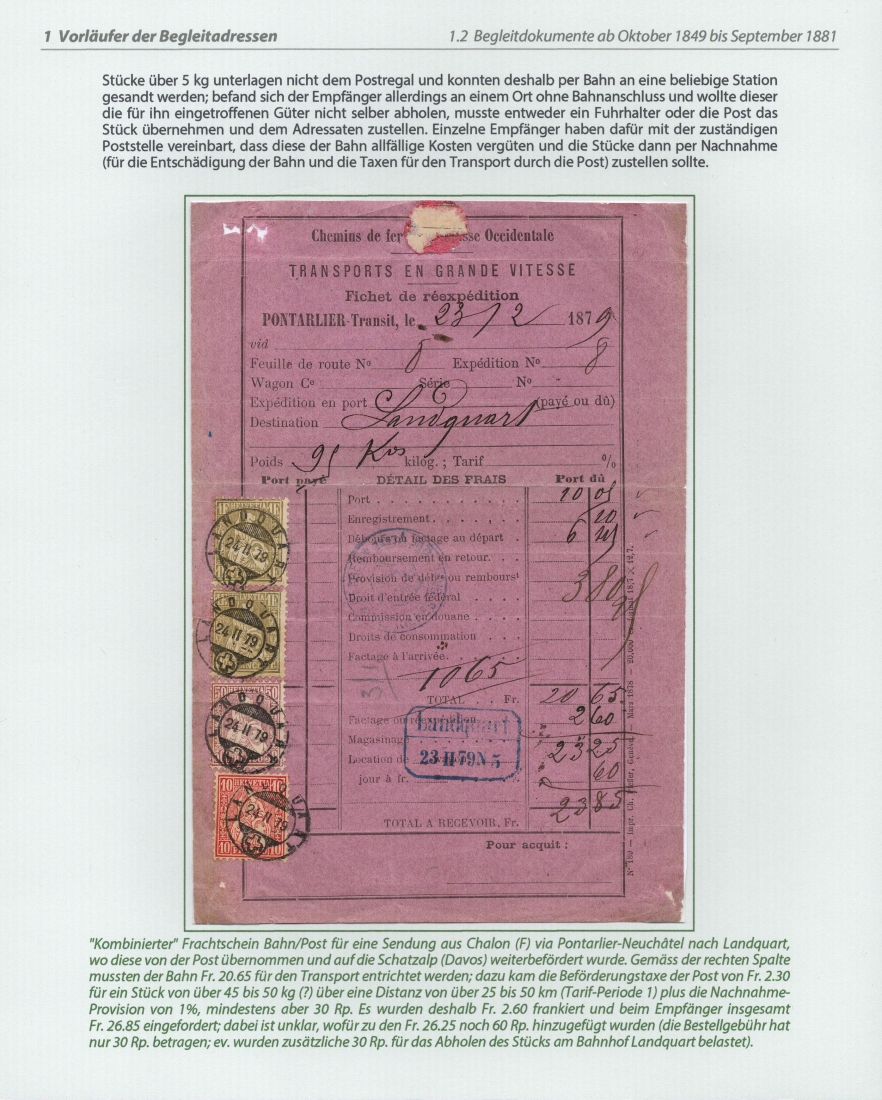 1 Vorläufer der Begleitadressen
1.2 Begleitdokumente ab Oktober 1849 bis September 1881
Stücke über 5 kg unterlagen nicht dem Postregal und konnten deshalb per Bahn an eine beliebige Station
gesandt werden; befand sich der Empfänger allerdings an einem Ort ohne Bahnanschluss und wollte dieser
die für ihn eingetroffenen Güter nicht selber abholen, musste entweder ein Fuhrhalter oder die Post das
Stück übernehmen und dem Adressaten zustellen. Einzelne Empfänger haben dafür mit der zuständigen
Poststelle vereinbart, dass diese der Bahn allfällige Kosten vergüten und die Stücke dann per Nachnahme
(für die Entschädigung der Bahn und die Taxen für den Transport durch die Post) zustellen sollte.
Chemins de fer sse Occidentale
TRANSPORTS EN GRANDE VITESSE
Fichet de réexpédition
PONTARLIER-Transit, le 23/2 1879
vid
Feuille de route No 8 Expédition No 8
Wagon Ce Série No
Expédition en port (payé ou dû)
Destination Landquart
Poids kilog. ; Tarif %
Port payé DÉTAIL DES FRAIS Port dû
Port
Enregistrement
factage au départ 6
Remboursement en retour.
Provision de déb. ou rembourst
Droit d'entrée fédéral
Commission en douane
Droits de consommation
Factage à l'arrivée.
1065
TOTAL Fr. 20 65
Factage ou réexpédition 2 60
Magasinage 23 25
Location de 60
jour à fr. 23 85
TOTAL A RECEVOIR, Fr.
Pour acquit :
Landquart
23 II 79 N 5
HELVETIA
LANDQUART
24 II 79
LANDQUART
24 II 79
50 HELVETIA 50
LANDQUART
24 II 79
10 HELVETIA 10
LANDQUART
24 II 79
10 10
"Kombinierter" Frachtschein Bahn/Post für eine Sendung aus Chalon (F) via Pontarlier-Neuchâtel nach Landquart,
wo diese von der Post übernommen und auf die Schatzalp (Davos) weiterbefördert wurde. Gemäss der rechten Spalte
mussten der Bahn Fr. 20.65 für den Transport entrichtet werden; dazu kam die Beförderungstaxe der Post von Fr. 2.30
für ein Stück von über 45 bis 50 kg (?) über eine Distanz von über 25 bis 50 km (Tarif-Periode 1) plus die Nachnahme-
Provision von 1%, mindestens aber 30 Rp. Es wurden deshalb Fr. 2.60 frankiert und beim Empfänger insgesamt
Fr. 26.85 eingefordert; dabei ist unklar, wofür zu den Fr. 26.25 noch 60 Rp. hinzugefügt wurden (die Bestellgebühr hat
nur 30 Rp. betragen; ev. wurden zusätzliche 30 Rp. für das Abholen des Stücks am Bahnhof Landquart belastet).